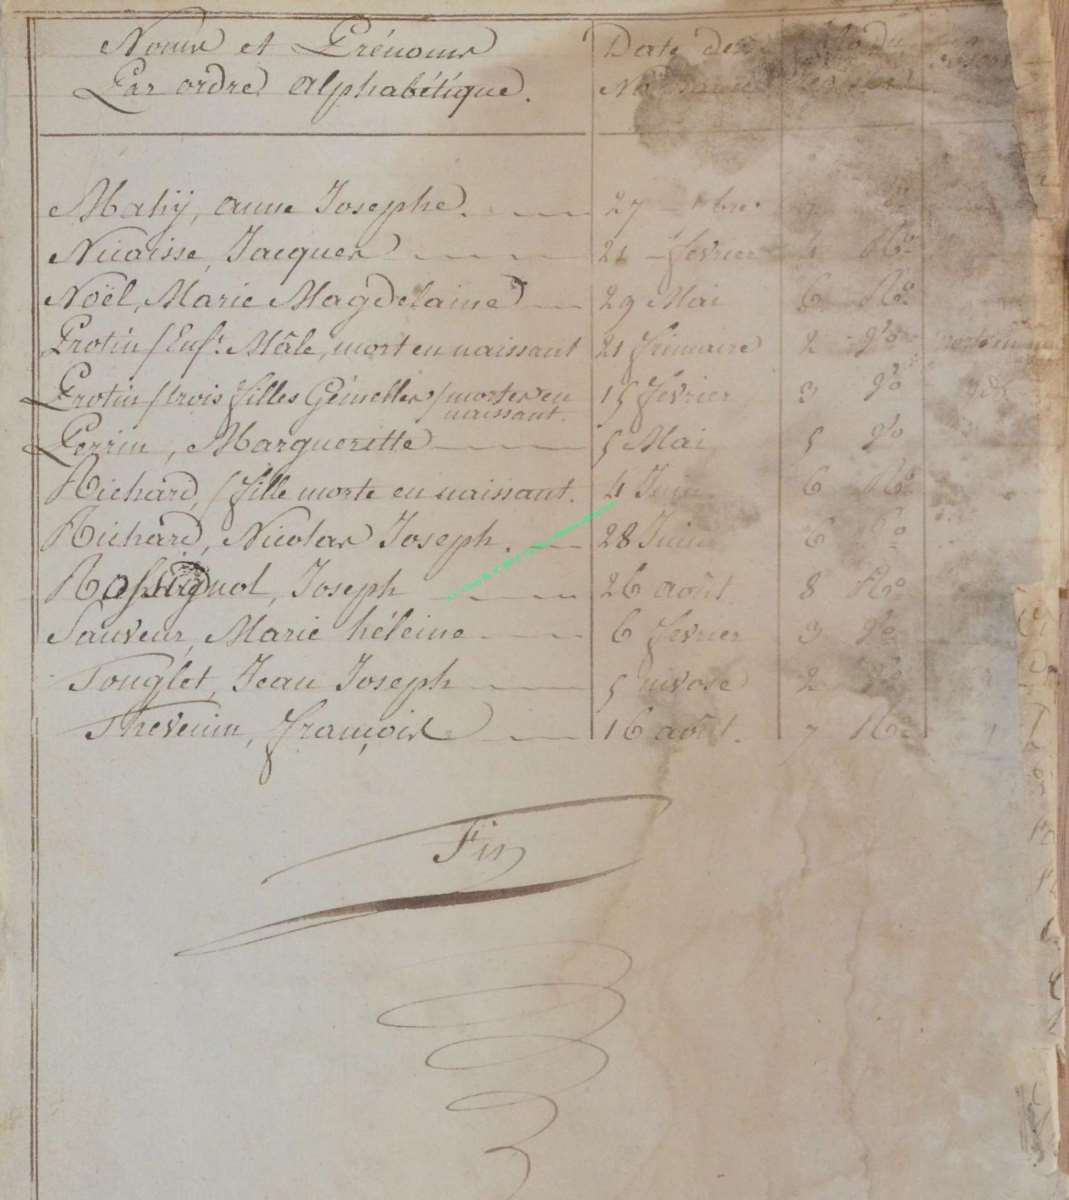 Noms et Prénoms Date des
Par ordre alphabétique. Naissances
Mahÿ, anne Josephe. 27 bre.
Nicaisse, Jacques 21 fevrier 4 Ro.
Noël, Marie Magdelaine 29 Mai 6 Ro.
Protin / Enft. Mâle, mort en naissant 21 frimaire 2 Vo
Protin / trois filles Gémelles / mortes en naissant. 15 fevrier 3 Vo
Perrin, Margueritte 5 Mai 5 Vo
Richard, / fille morte en naissant. 4 Juin 6 Ro.
Richard, Nicolas Joseph. 28 Juin 6
Rossignol, Joseph 26 août. 8 Ro.
Sauveur, Marie héleine 6 fevrier 3 Vo
Tonglet, Jean Joseph 5 nivose 2
Thevenin, françois 16 août. 7 Ro.
Fin